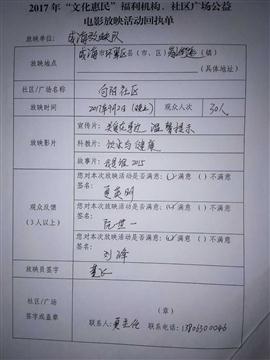 2017年“文化惠民”福利机构、社区广场公益
电影放映活动回执单
放映单位: 威海放映队
放映地点 威海市环翠区县(市、区) (镇)
(具体地址)
社区/广场名称 向阳社区
放映时间 2017年9月2日(晚上) 观众人次 30人
放映影片
宣传片: 温馨提示
科教片: 饮水与健康
故事片: 2015
观众反馈
(3人以上)
您对本次放映活动是否满意: (√)满意 ( )不满意
签名:
您对本次放映活动是否满意: (√)满意 ( )不满意
签名:
您对本次放映活动是否满意: (√)满意 ( )不满意
签名: 刘峰
放映员签字
社区/广场
签字或盖章
(章)
联系人: 联系电话: